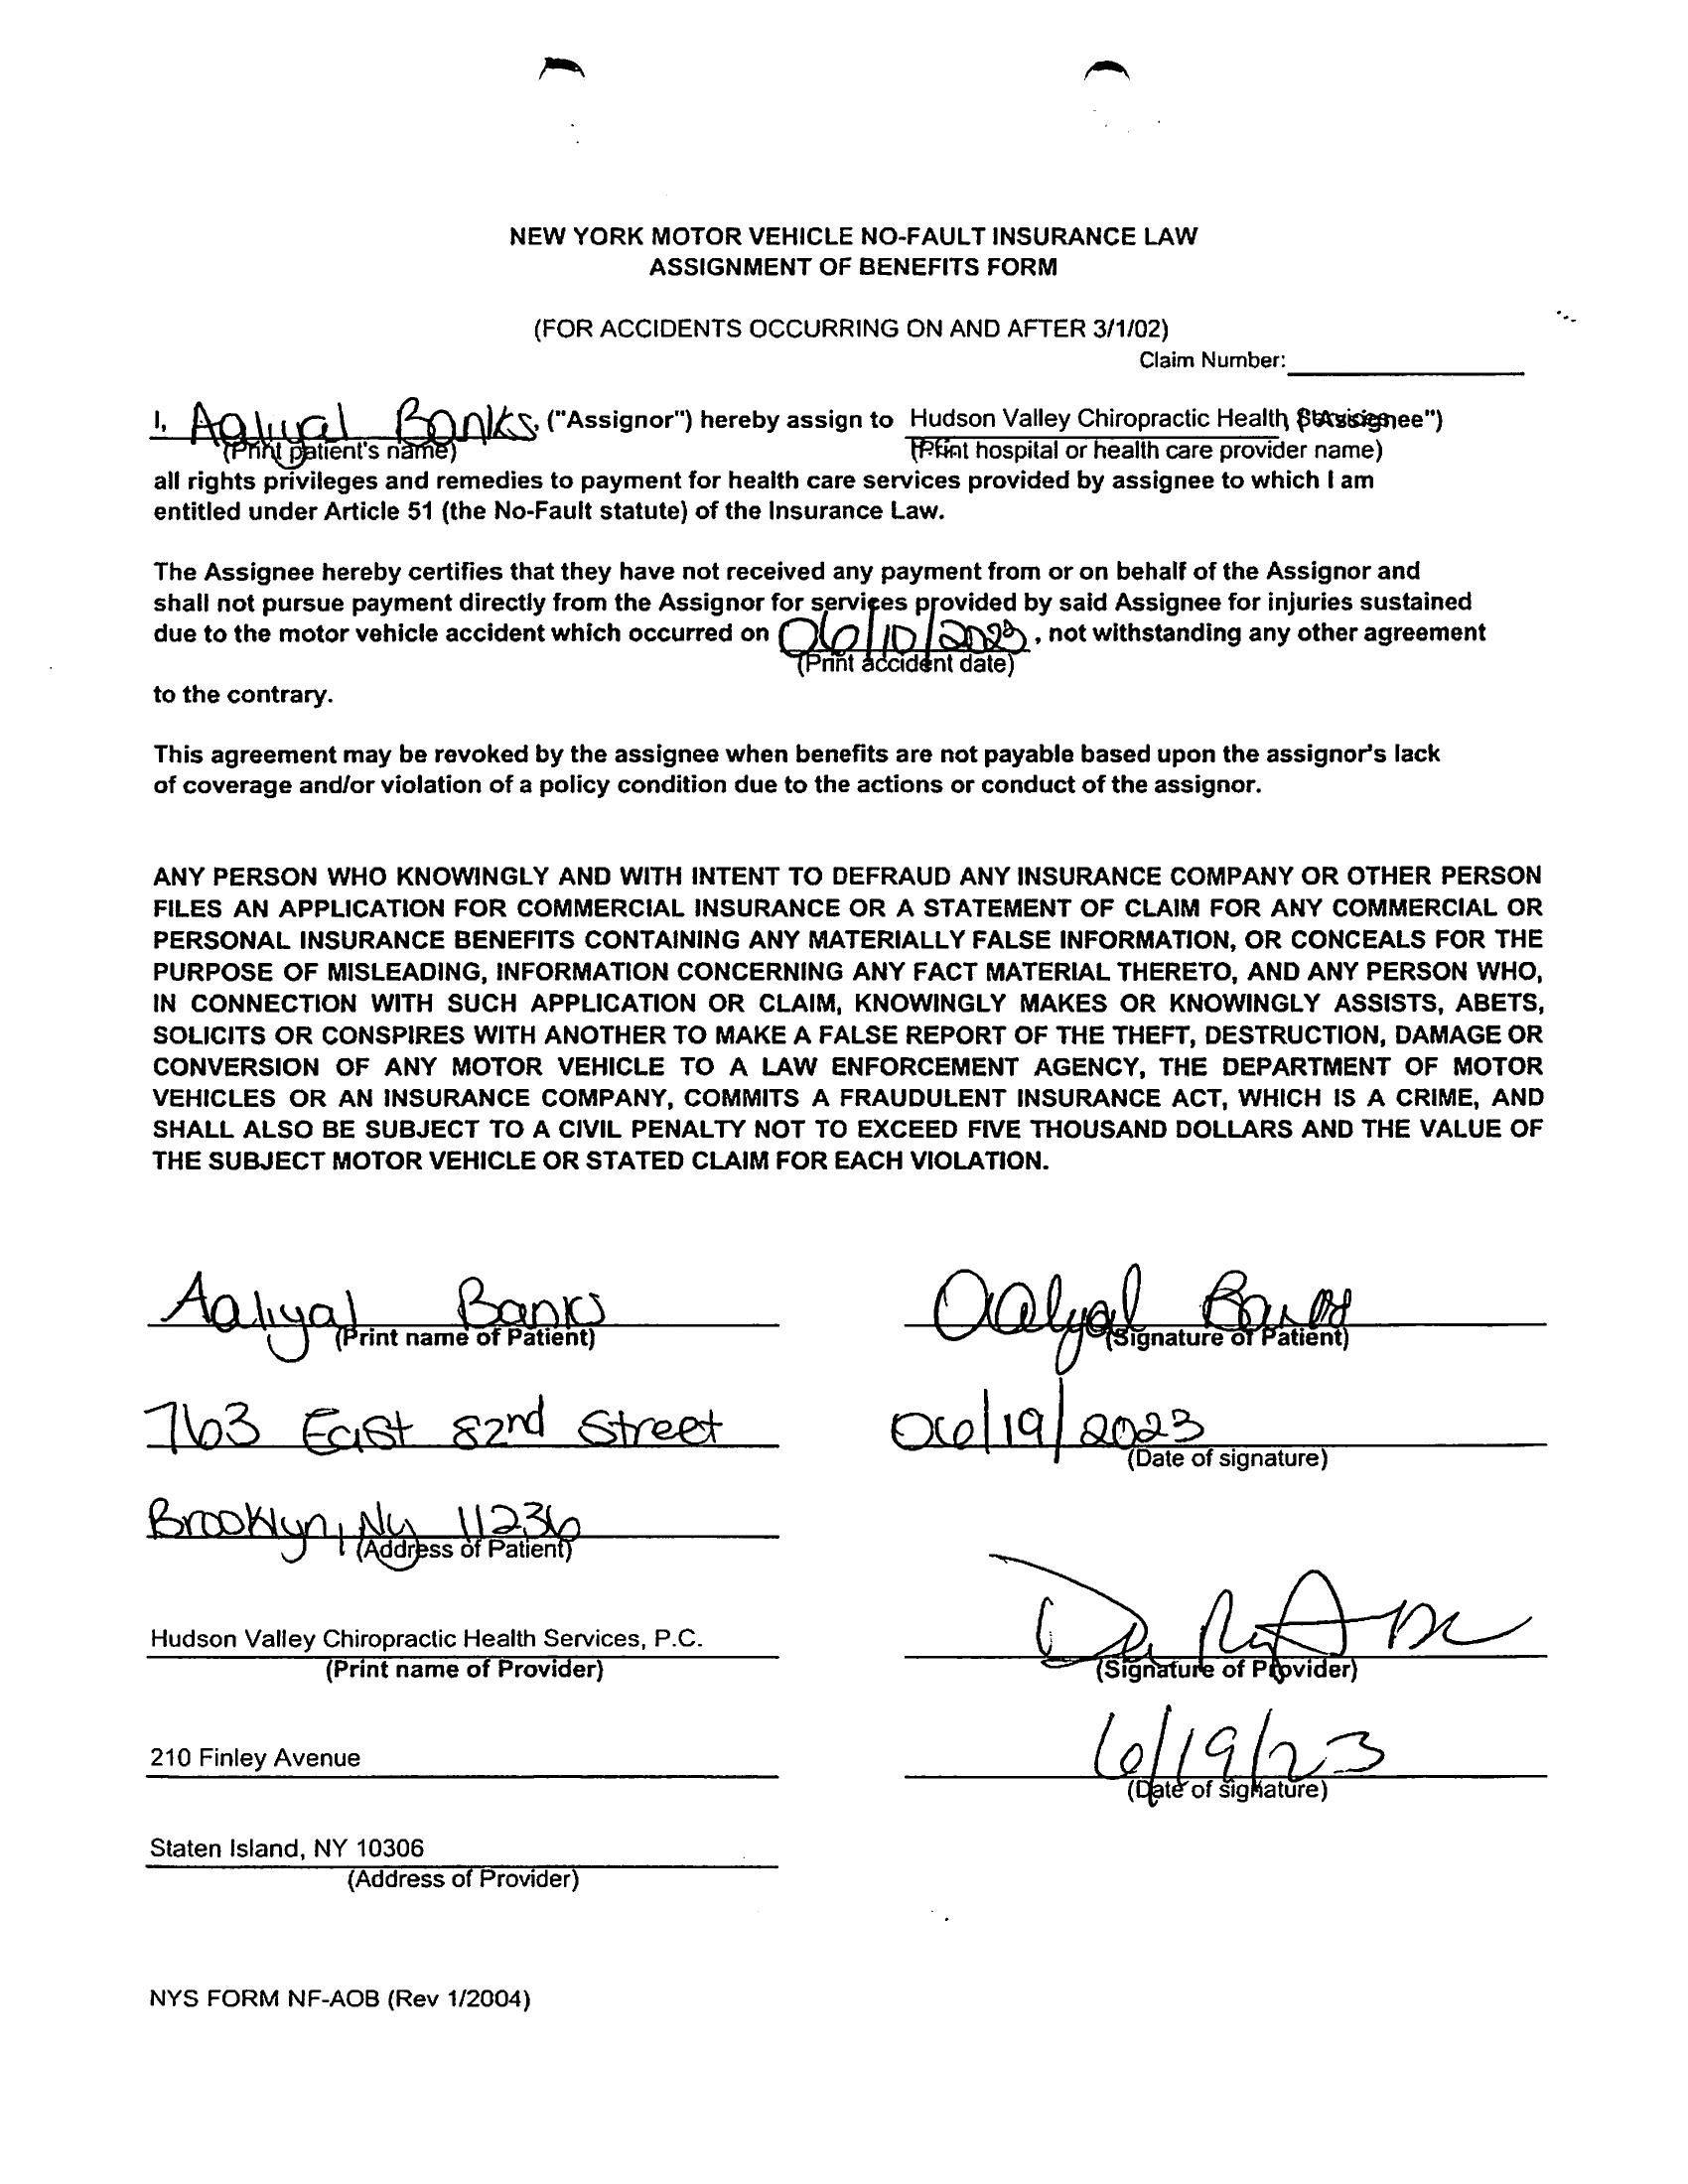 NEW YORK MOTOR VEHICLE NO-FAULT INSURANCE LAW
ASSIGNMENT OF BENEFITS FORM
(FOR ACCIDENTS OCCURRING ON AND AFTER 3/1/02)
Claim Number:
I, Aaliyal Banks, ("Assignor") hereby assign to Hudson Valley Chiropractic Health Services ("Assignee")
(Print patient's name) (Print hospital or health care provider name)
all rights privileges and remedies to payment for health care services provided by assignee to which I am
entitled under Article 51 (the No-Fault statute) of the Insurance Law.
The Assignee hereby certifies that they have not received any payment from or on behalf of the Assignor and
shall not pursue payment directly from the Assignor for services provided by said Assignee for injuries sustained
due to the motor vehicle accident which occurred on 06/10/2023, not withstanding any other agreement
(Print accident date)
to the contrary.
This agreement may be revoked by the assignee when benefits are not payable based upon the assignor's lack
of coverage and/or violation of a policy condition due to the actions or conduct of the assignor.
ANY PERSON WHO KNOWINGLY AND WITH INTENT TO DEFRAUD ANY INSURANCE COMPANY OR OTHER PERSON
FILES AN APPLICATION FOR COMMERCIAL INSURANCE OR A STATEMENT OF CLAIM FOR ANY COMMERCIAL OR
PERSONAL INSURANCE BENEFITS CONTAINING ANY MATERIALLY FALSE INFORMATION, OR CONCEALS FOR THE
PURPOSE OF MISLEADING, INFORMATION CONCERNING ANY FACT MATERIAL THERETO, AND ANY PERSON WHO,
IN CONNECTION WITH SUCH APPLICATION OR CLAIM, KNOWINGLY MAKES OR KNOWINGLY ASSISTS, ABETS,
SOLICITS OR CONSPIRES WITH ANOTHER TO MAKE A FALSE REPORT OF THE THEFT, DESTRUCTION, DAMAGE OR
CONVERSION OF ANY MOTOR VEHICLE TO A LAW ENFORCEMENT AGENCY, THE DEPARTMENT OF MOTOR
VEHICLES OR AN INSURANCE COMPANY, COMMITS A FRAUDULENT INSURANCE ACT, WHICH IS A CRIME, AND
SHALL ALSO BE SUBJECT TO A CIVIL PENALTY NOT TO EXCEED FIVE THOUSAND DOLLARS AND THE VALUE OF
THE SUBJECT MOTOR VEHICLE OR STATED CLAIM FOR EACH VIOLATION.
Aaliyal Banks Aaliyal Banks
(Print name of Patient) (Signature of Patient)
763 East 82nd Street 06/19/2023
(Date of signature)
Brooklyn, Ny 11236
(Address of Patient)
Hudson Valley Chiropractic Health Services, P.C.
(Print name of Provider) (Signature of Provider)
210 Finley Avenue 6/19/23
(Date of signature)
Staten Island, NY 10306
(Address of Provider)
NYS FORM NF-AOB (Rev 1/2004)